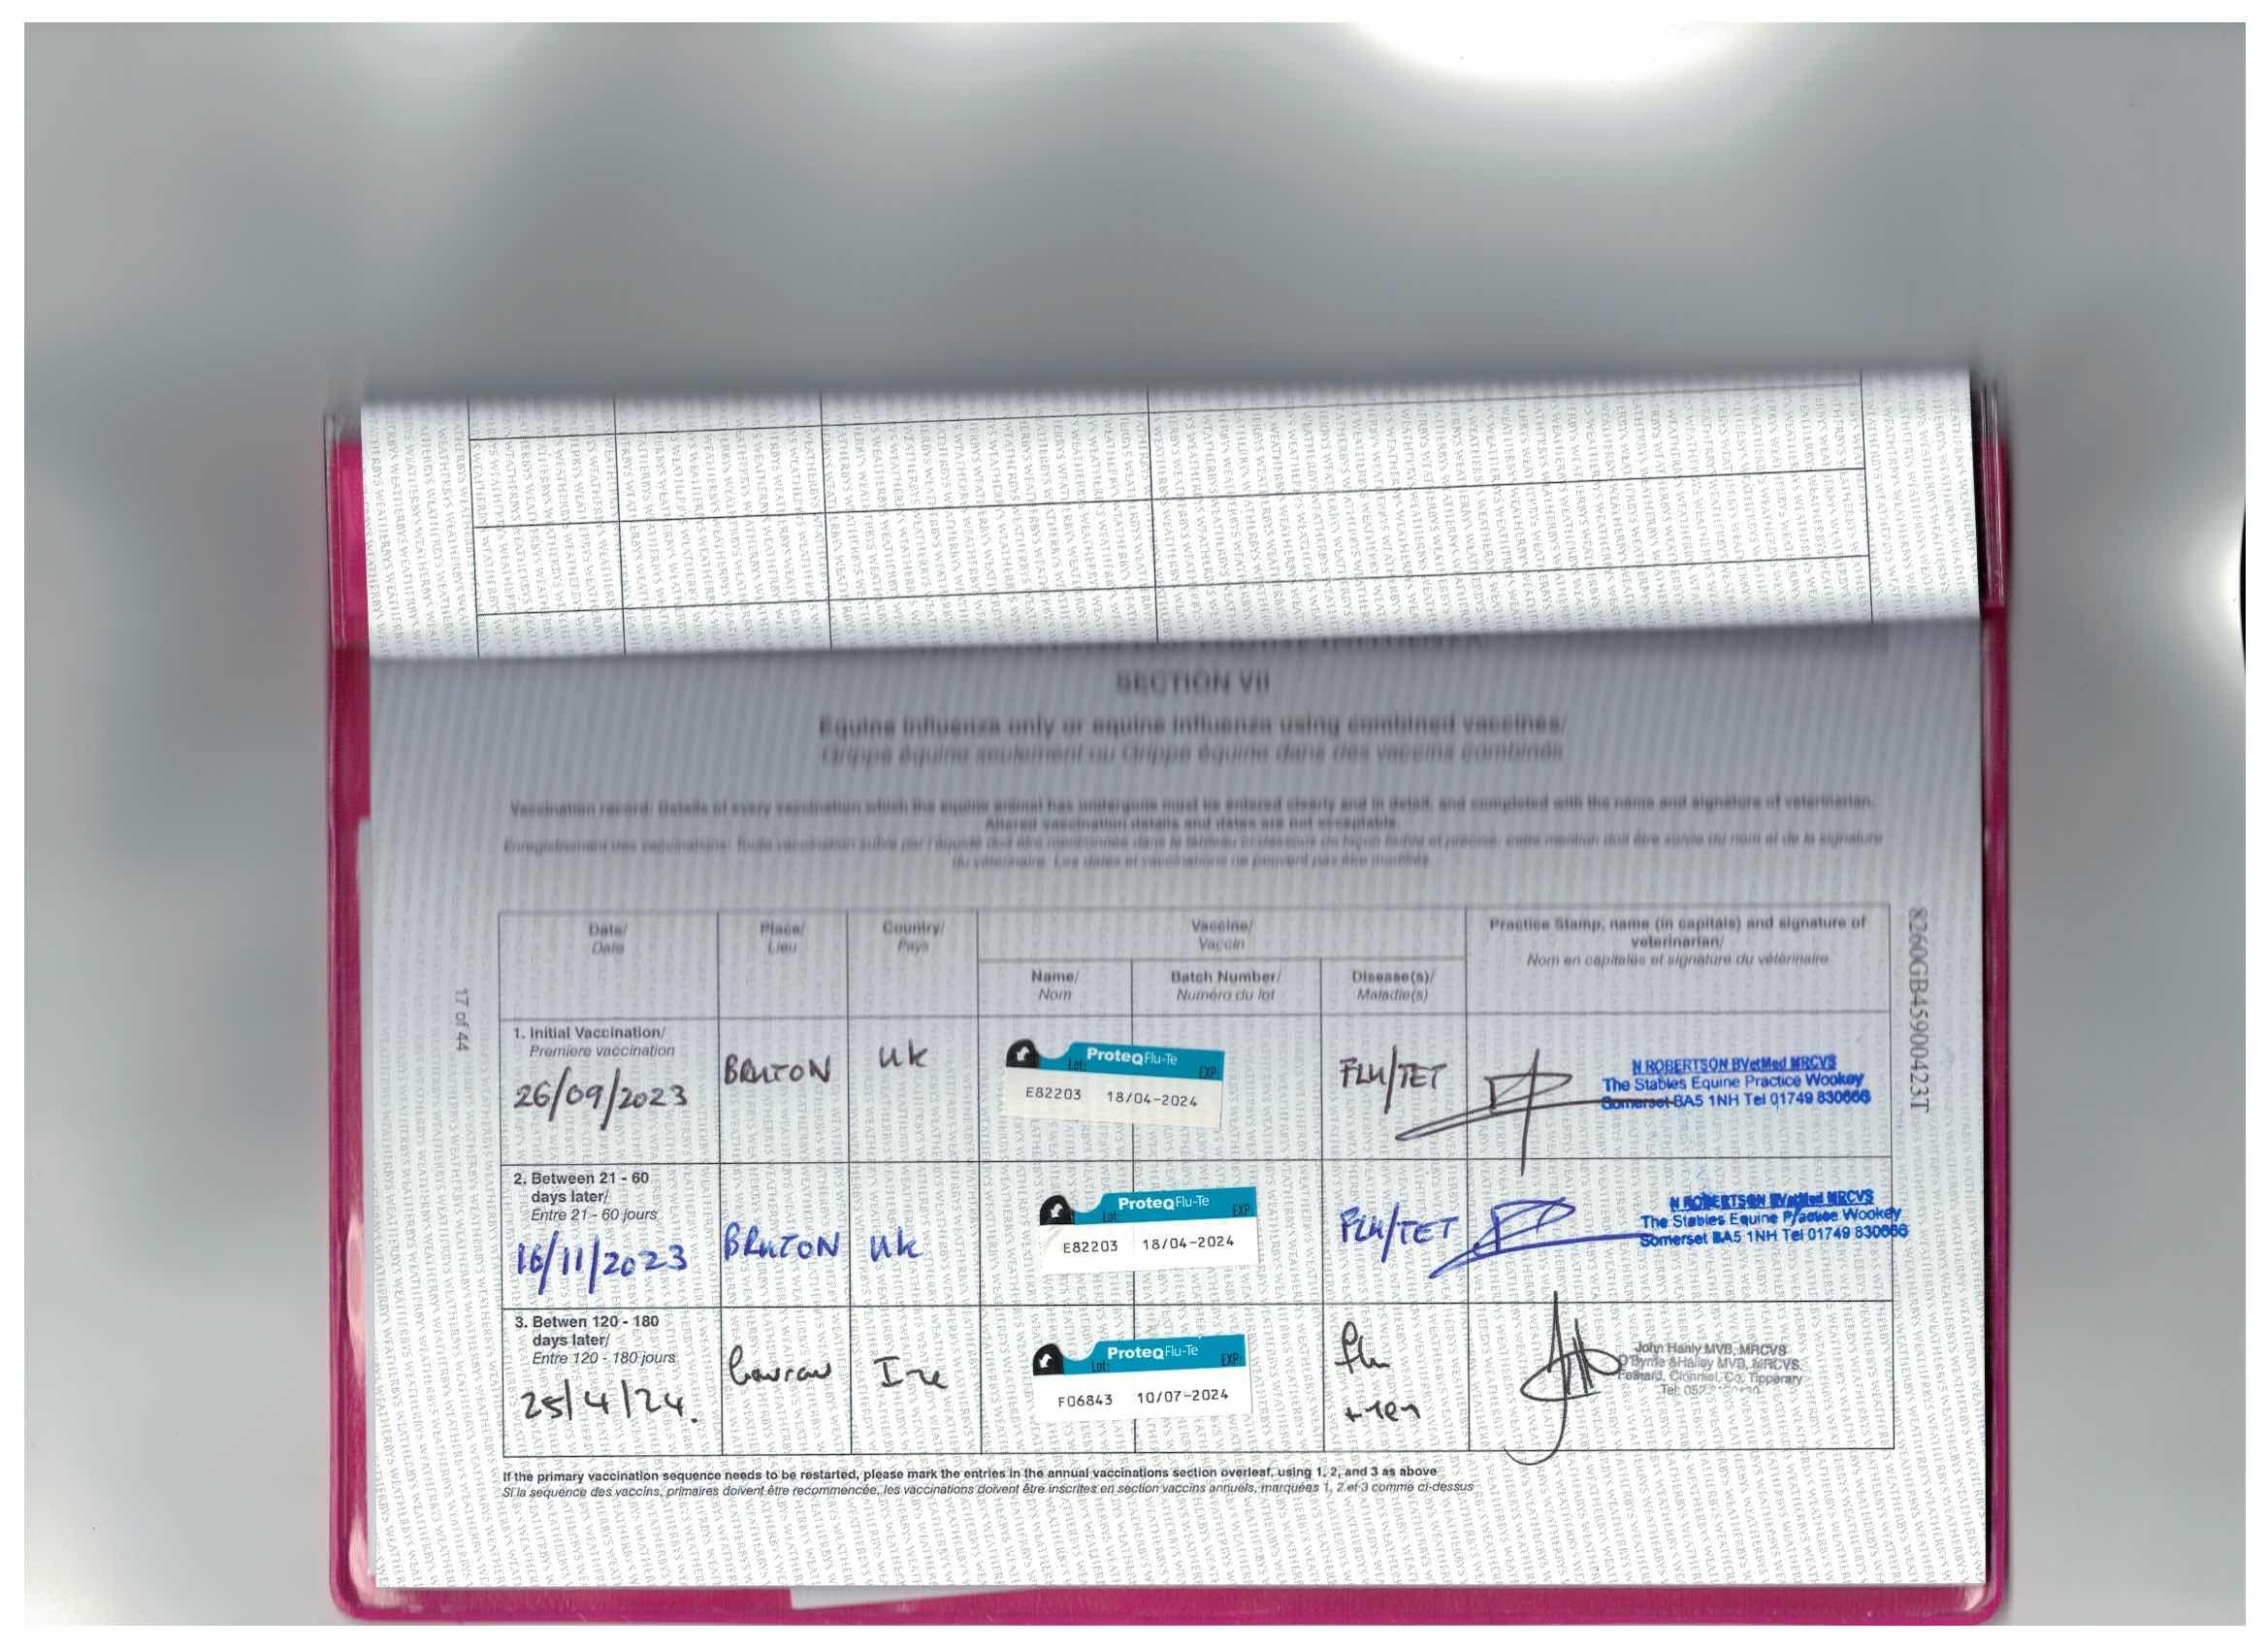 SECTION VII
Equine Influenza only or equine influenza using combined vaccines/
Grippe équine seulement ou Grippe équine dans des vaccins combinés
Vaccination record: Details of every vaccination which the equine animal has undergone must be entered clearly and in detail, and completed with the name and signature of veterinarian.
Altered vaccination details and dates are not acceptable.
du vétérinaire. Les dates et vaccinations ne peuvent pas être
Date/ Place/ Country/ Vaccine/ Practice Stamp, name (in capitals) and signature of
Date Lieu Pays Vaccin veterinarian/
Nom en capitales et signature du vétérinaire
Name/ Batch Number/ Disease(s)/
Nom Numéro du lot Maladie(s)
17 of 44
8260GB45900423T
1. Initial Vaccination/
Premiere vaccination
26/09/2023
BRUTON
UK
ProteqFlu-Te
Lot: EXP:
E82203 18/04-2024
FLU/TET
N ROBERTSON BVetMed MRCVS
The Stables Equine Practice Wookey
Somerset BA5 1NH Tel 01749 830666
2. Between 21 - 60
days later/
Entre 21 - 60 jours
16/11/2023
BRUTON
UK
ProteqFlu-Te
Lot: EXP:
E82203 18/04-2024
FLU/TET
N ROBERTSON BVetMed MRCVS
The Stables Equine Practice Wookey
Somerset BA5 1NH Tel 01749 830666
3. Betwen 120 - 180
days later/
Entre 120 - 180 jours
25/4/24.
Ire
ProteqFlu-Te
Lot: EXP:
F06843 10/07-2024
flu
+ ten
John Hanly MVB, MRCVS
O'Byrne & Halley MVB, MRCVS.
Fethard, Clonmel, Co. Tipperary
Tel: 052
If the primary vaccination sequence needs to be restarted, please mark the entries in the annual vaccinations section overleaf, using 1, 2, and 3 as above
Si la sequence des vaccins, primaires doivent être recommencée, les vaccinations doivent être inscrites en section vaccins annuels, marquées 1, 2 et 3 comme ci-dessus